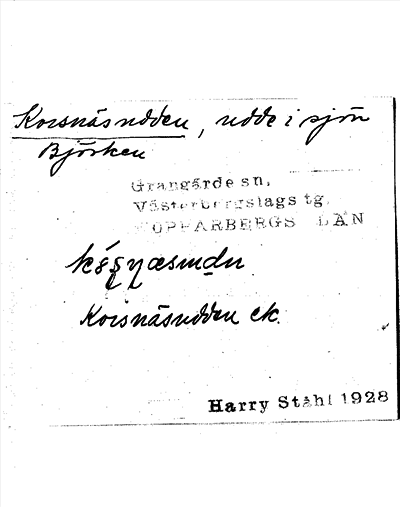 Korsnäsudden, udde i sjön
Björken
Grangärde sn,
Västerbergslags tg.
KOPPARBERGS LÄN
Korsnäsudden ek.
Harry Ståhl 1928